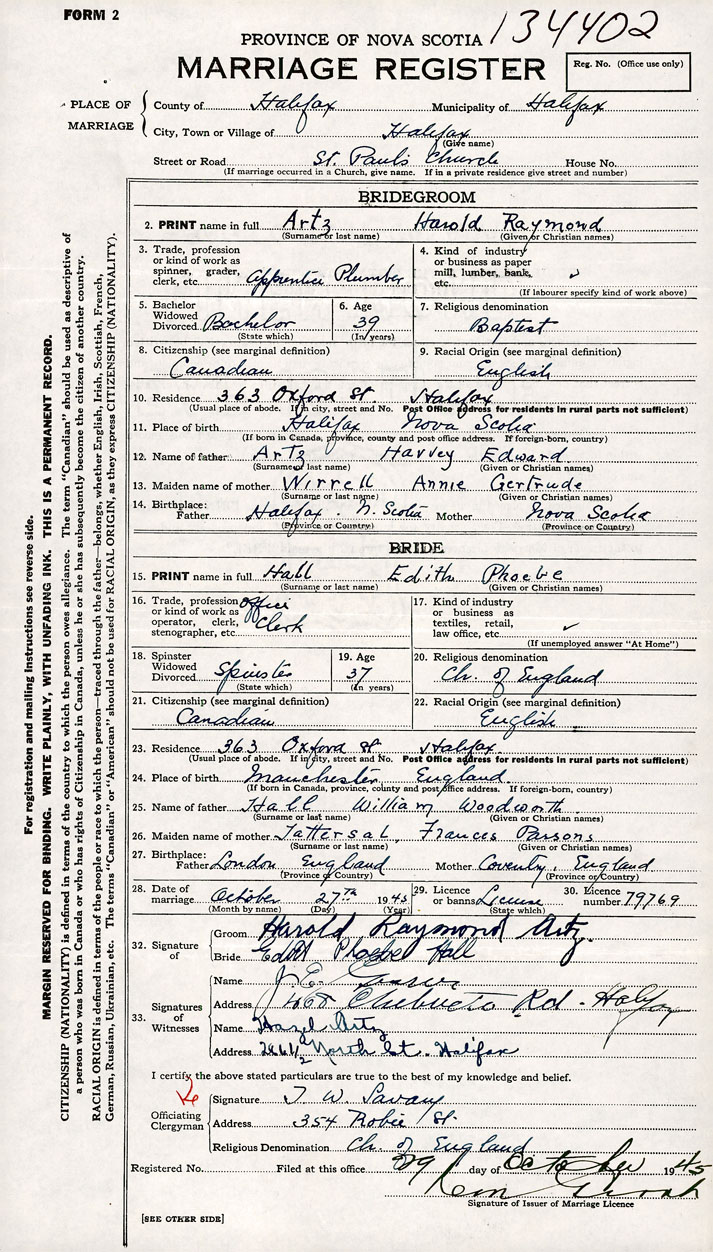 FORM 2
134402
PROVINCE OF NOVA SCOTIA
MARRIAGE REGISTER
Reg. No. (Office use only)
PLACE OF MARRIAGE
County of Halifax Municipality of Halifax
City, Town or Village of Halifax
(Give name)
Street or Road St. Paul's Church House No.
(If marriage occurred in a Church, give name. If in a private residence give street and number)
BRIDEGROOM
2. PRINT name in full Artz Harold Raymond
(Surname or last name) (Given or Christian names)
3. Trade, profession or kind of work as spinner, grader, clerk, etc. Apprentice Plumber
4. Kind of industry or business as paper mill, lumber, bank, etc.
(If labourer specify kind of work above)
5. Bachelor Widowed Divorced Bachelor
(State which)
6. Age 39
(In years)
7. Religious denomination
Baptist
8. Citizenship (see marginal definition)
Canadian
9. Racial Origin (see marginal definition)
English
10. Residence 363 Oxford St. Halifax
(Usual place of abode. If in city, street and No. Post Office address for residents in rural parts not sufficient)
11. Place of birth Halifax Nova Scotia
(If born in Canada, province, county and post office address. If foreign-born, country)
12. Name of father Artz Harvey Edward
(Surname or last name) (Given or Christian names)
13. Maiden name of mother Wirrell Annie Gertrude
(Surname or last name) (Given or Christian names)
14. Birthplace: Father Halifax. N. Scotia Mother Nova Scotia
(Province or Country) (Province or Country)
BRIDE
15. PRINT name in full Hall Edith Phoebe
(Surname or last name) (Given or Christian names)
16. Trade, profession or kind of work as operator, clerk, stenographer, etc. Office Clerk
17. Kind of industry or business as textiles, retail, law office, etc.
(If unemployed answer "At Home")
18. Spinster Widowed Divorced Spinster
(State which)
19. Age 37
(In years)
20. Religious denomination
Ch. of England
21. Citizenship (see marginal definition)
Canadian
22. Racial Origin (see marginal definition)
English
23. Residence 363 Oxford St Halifax
(Usual place of abode. If in city, street and No. Post Office address for residents in rural parts not sufficient)
24. Place of birth Manchester England
(If born in Canada, province, county and post office address. If foreign-born, country)
25. Name of father Hall William Woodworth
(Surname or last name) (Given or Christian names)
26. Maiden name of mother Tattersal, Frances Parsons
(Surname or last name) (Given or Christian names)
27. Birthplace: Father London England Mother Coventy, England
(Province or Country) (Province or Country)
28. Date of marriage October 27th 1945
(Month by name) (Day) (Year)
29. Licence or banns License
(State which)
30. Licence number 79769
32. Signature of
Groom Harold Raymond Artz.
Bride Edith Phoebe Hall
33. Signatures of Witnesses
Name J. E.
Address 468 Chebucto Rd - Halifax
Name Hazel Artz
Address 266 1/2 North St. Halifax
I certify the above stated particulars are true to the best of my knowledge and belief.
Officiating Clergyman
Signature T. W. Savary
Address 354 Robie St.
Religious Denomination Ch. of England
Registered No. Filed at this office 29 day of October 1945
Signature of Issuer of Marriage Licence
[SEE OTHER SIDE]
For registration and mailing instructions see reverse side.
MARGIN RESERVED FOR BINDING. WRITE PLAINLY, WITH UNFADING INK. THIS IS A PERMANENT RECORD.
CITIZENSHIP (NATIONALITY) is defined in terms of the country to which the person owes allegiance. The term "Canadian" should be used as descriptive of
a person who was born in Canada or who has rights of Citizenship in Canada, unless he or she has subsequently become the citizen of another country.
RACIAL ORIGIN is defined in terms of the people or race to which the person—traced through the father—belongs, whether English, Irish, Scottish, French,
German, Russian, Ukrainian, etc. The terms "Canadian" or "American" should not be used for RACIAL ORIGIN, as they express CITIZENSHIP (NATIONALITY).